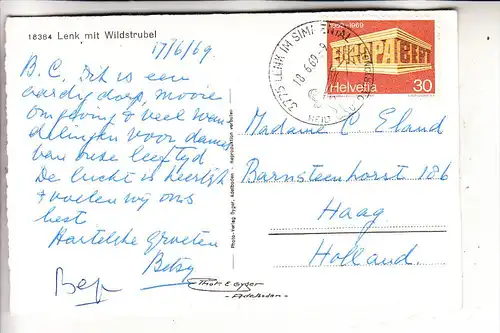 18384 Lenk mit Wildstrubel
17/6/69
B.C. Dit is een
aardig dorp, mooie
omgeving & veel wan-
delingen voor dames
van onze leeftijd
De lucht is heerlijk
& voelen wij ons
best
Hartelijke groeten
Betsy
Bep
Photo-Verlag Gyger, Adelboden - Reproduktion verboten
Phot. E. Gyger
- Adelboden -
3775 LENK IM SIMMENTAL
18.6.69-9
1959-1969
EUROPA CEPT
Helvetia 30
Madame C Eland
Barnsteenhorst 186
Haag
Holland.